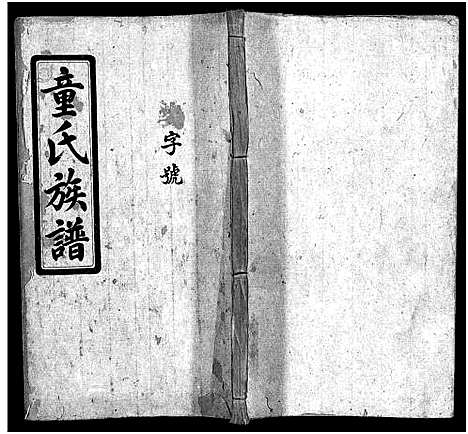 童氏族譜
字號